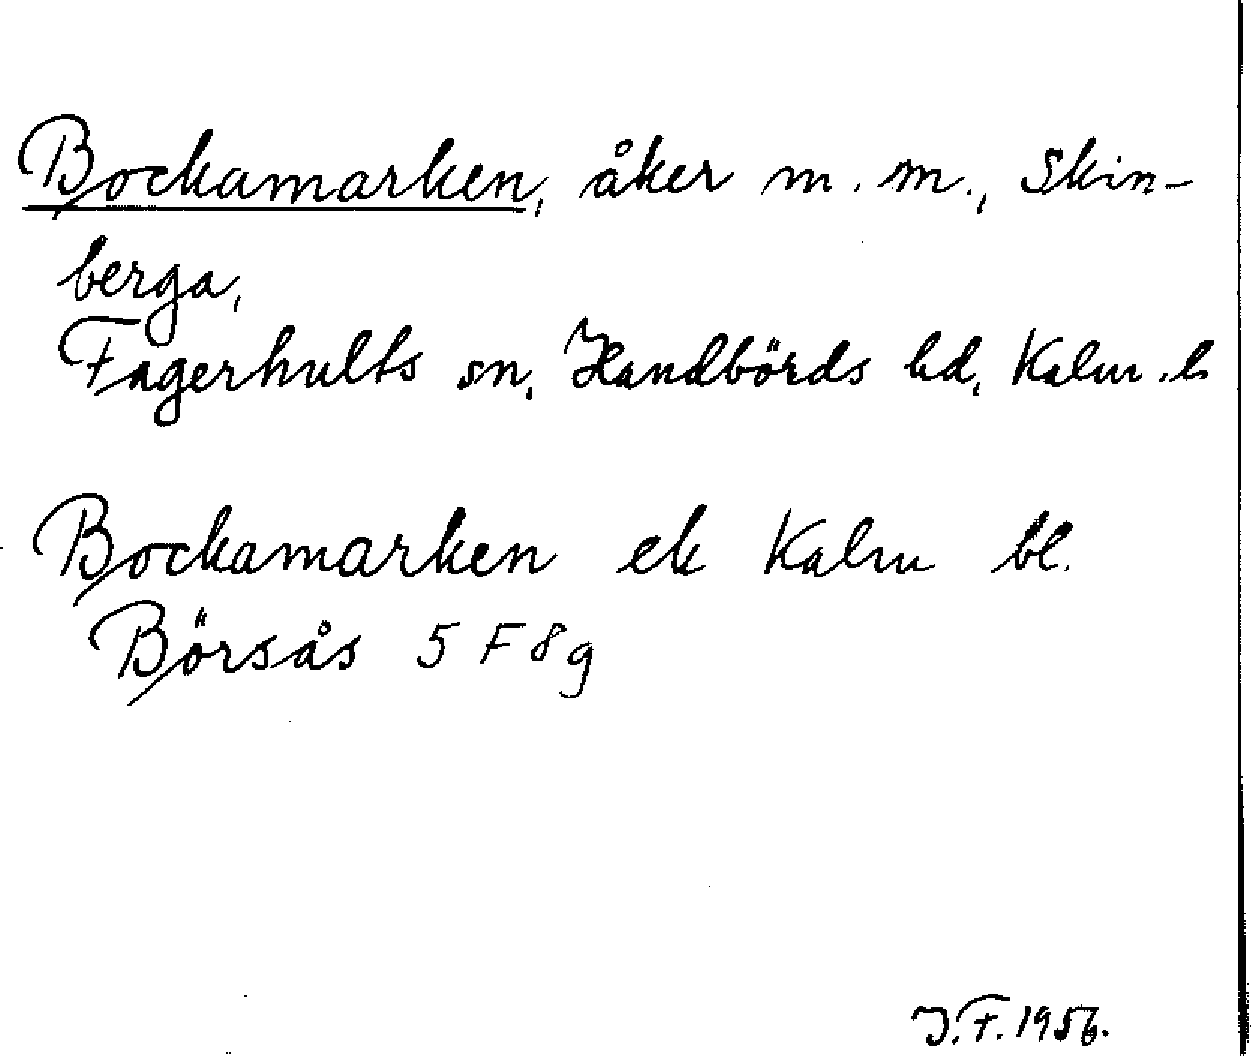 Bockamarken, åker m. m., Skin-
berga,
Fagerhults sn, Handbörds hd, Kalm. l.
Bockamarken ek Kalm bl.
Börsås 5 F 8 g
J.F. 1956.